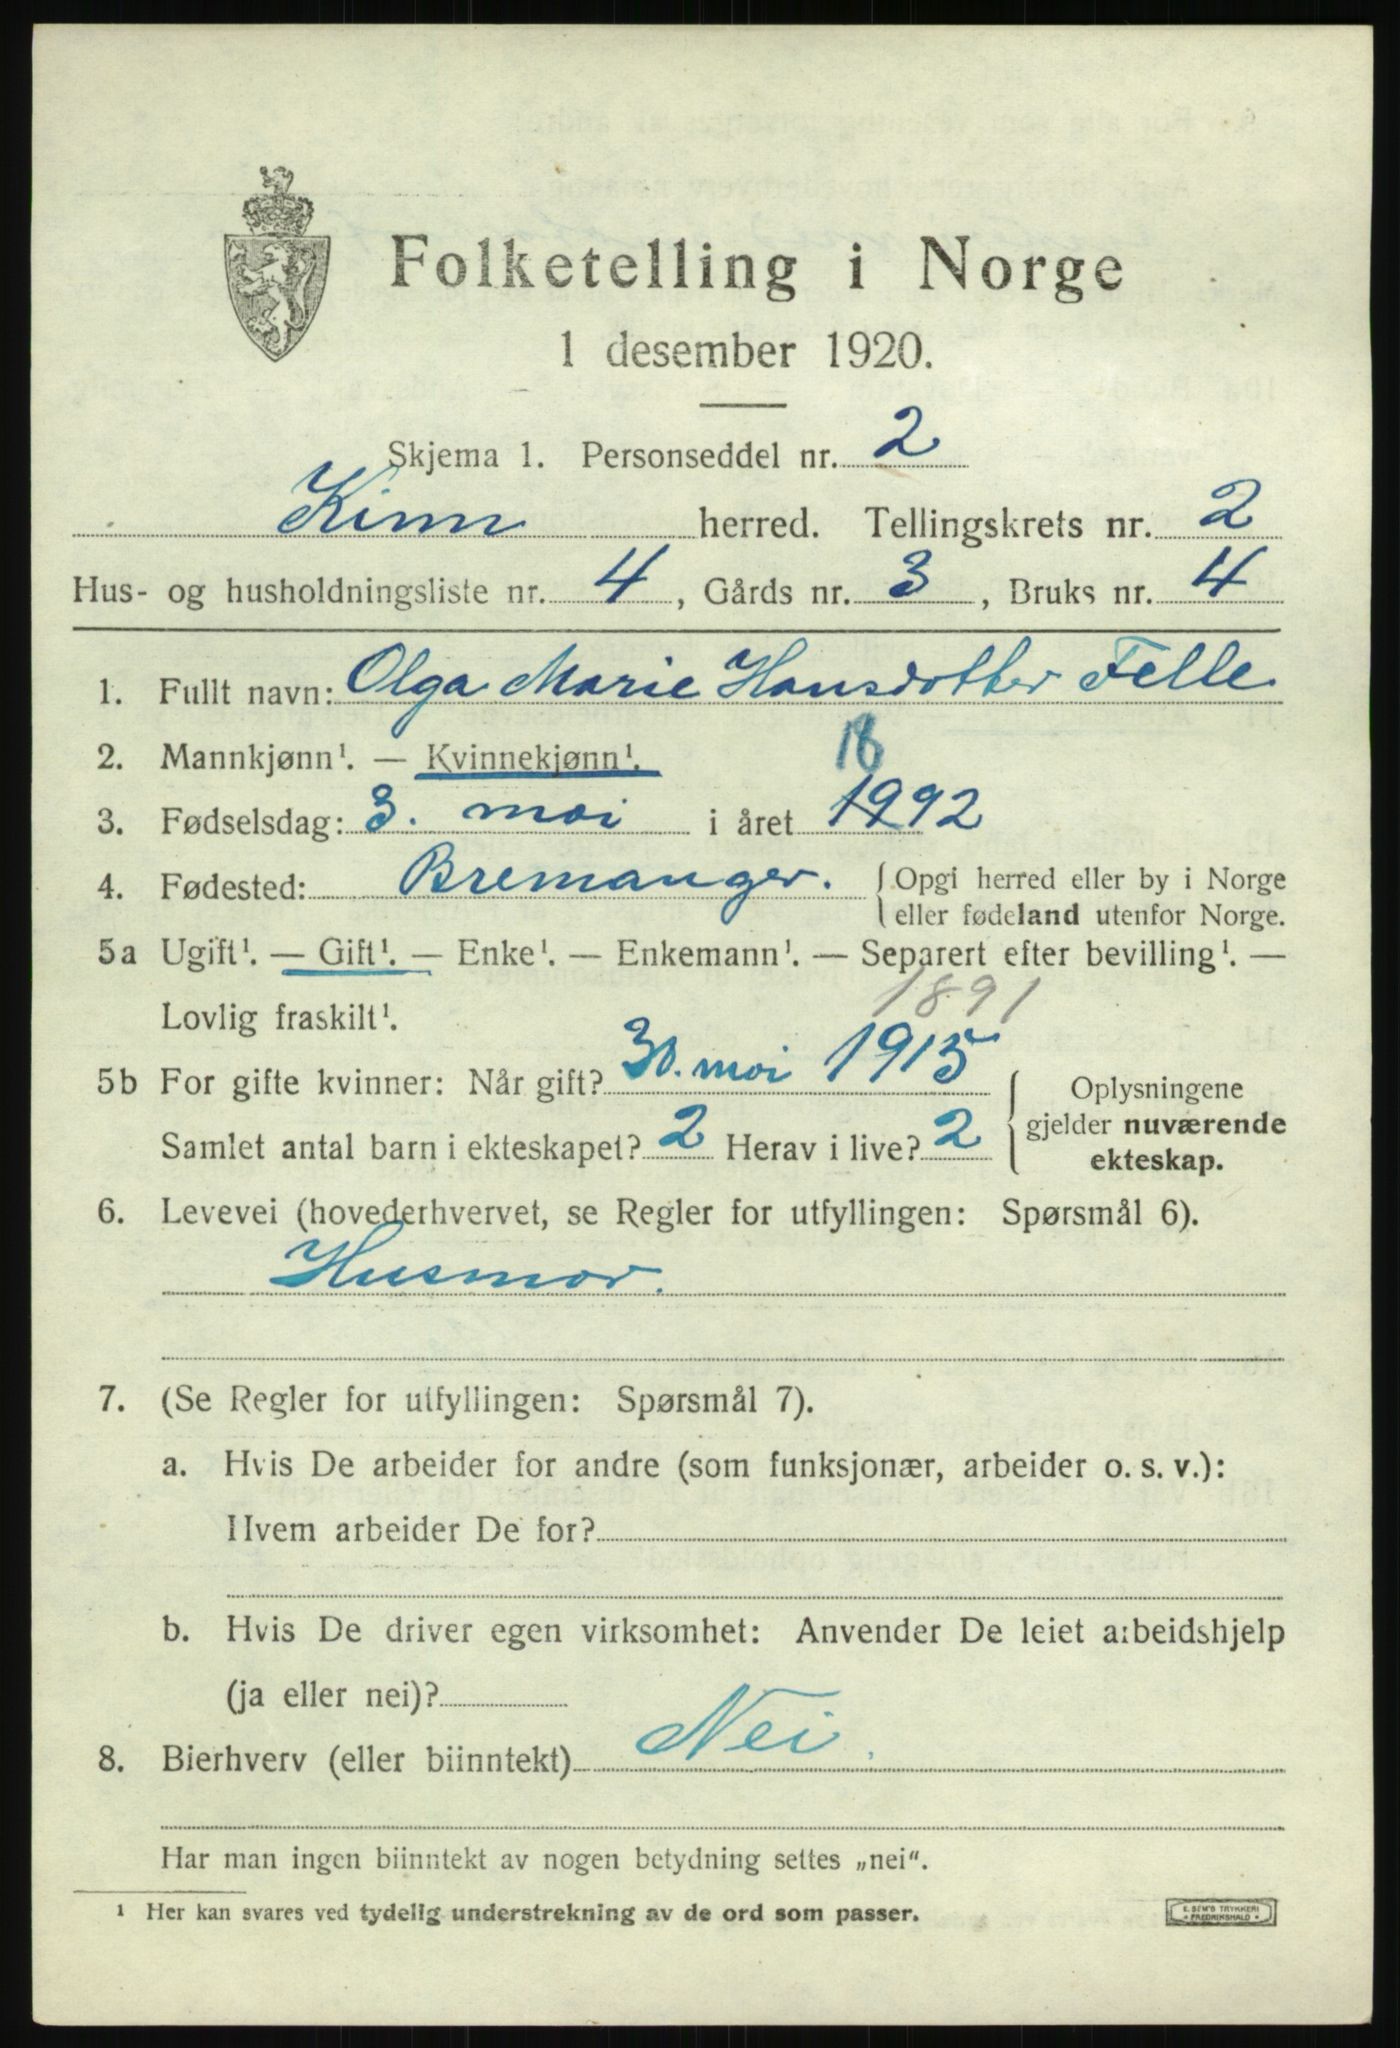 Folketelling i Norge
1 desember 1920.
Skjema 1. Personseddel nr. 2
Kinn herred. Tellingskrets nr. 2
Hus- og husholdningsliste nr. 4, Gårds nr. 3, Bruks nr. 4
1. Fullt navn: Olga Marie Hansdotter Felle
2. Mannkjønn¹. — Kvinnekjønn¹.
18
3. Fødselsdag: 3. mai i året 1992
4. Fødested: Bremanger. { Opgi herred eller by i Norge
eller fødeland utenfor Norge.
5a Ugift¹. — Gift¹. — Enke¹. — Enkemann¹. — Separert efter bevilling¹. —
Lovlig fraskilt¹. 1891
5b For gifte kvinner: Når gift? 30. mai 1915
Samlet antal barn i ekteskapet? 2 Herav i live? 2
Oplysningene
gjelder nuværende
ekteskap.
6. Levevei (hovederhvervet, se Regler for utfyllingen: Spørsmål 6).
Husmor.
7. (Se Regler for utfyllingen: Spørsmål 7).
a. Hvis De arbeider for andre (som funksjonær, arbeider o. s. v.):
Hvem arbeider De for?
b. Hvis De driver egen virksomhet: Anvender De leiet arbeidshjelp
(ja eller nei)?
8. Bierhverv (eller biinntekt) Nei.
Har man ingen biinntekt av nogen betydning settes „nei“.
¹ Her kan svares ved tydelig understrekning av de ord som passer.
E. SEM'S TRYKKERI
FREDRIKSHALD